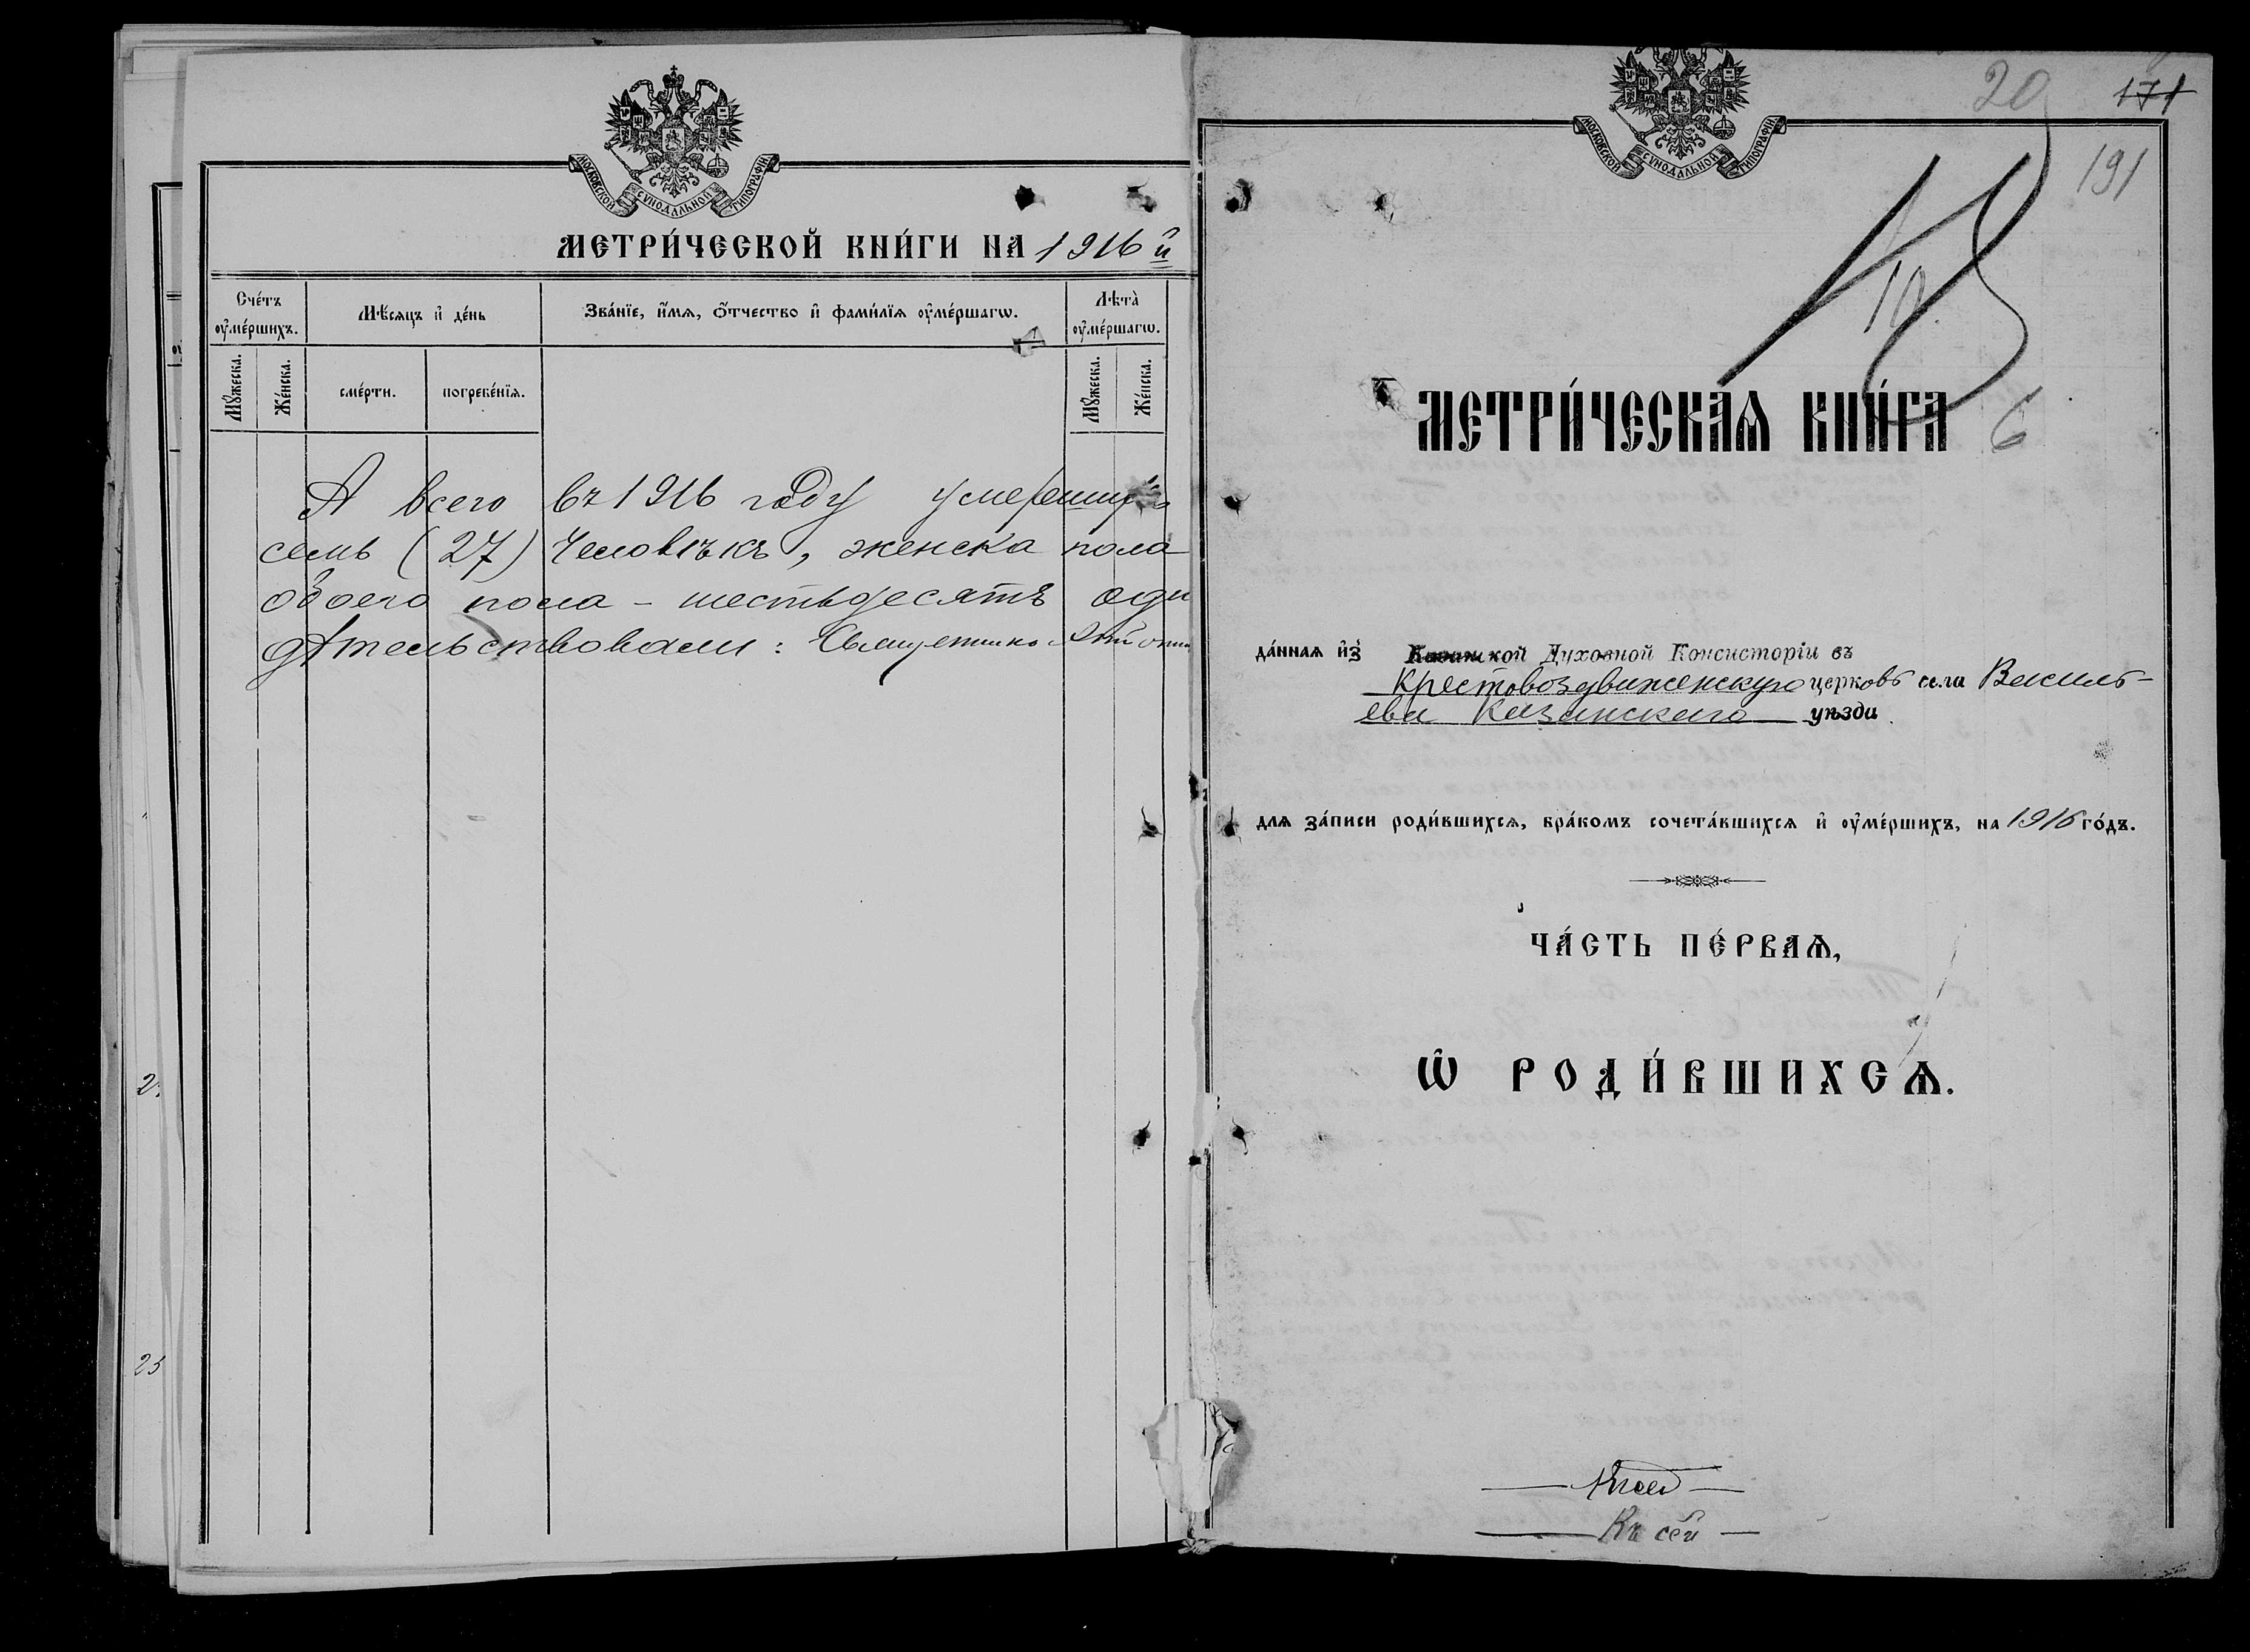 МОСКОВСКОЙ СѴНОДАЛЬНОЙ ТИПОГРАФІИ
МЕТРИ́ЧЕСКОЙ КНИ́ГИ НА 1916 й
Сче́тъ ᲂу҆ме́ршихъ.
Мѣ́сяцъ и҆ де́нь
Зва́нїе, и҆́мѧ, ѻ҆́тчество и҆ фами́лїѧ ᲂу҆ме́ршагѡ.
Лѣта̀ ᲂу҆ме́ршагѡ.
Мꙋ́жеска.
Же́нска.
сме́рти.
погребе́нїѧ.
Мꙋ́жеска.
Же́нска.
А всего въ 1916 году умерших
семь (27) человѣкъ, женска пола
обоего пола - шестьдесятъ оди
дѣтельствовали:
2.
25
МОСКОВСКОЙ СѴНОДАЛЬНОЙ ТИПОГРАФІИ
20 171
191
10
МЕТРИ́ЧЕСКАѦ КНИ́ГА 6
да́ннаѧ и҆з̾ Казанской Духовной Консисторіи въ
Крестовоздвиженскую церковь села Василь-
ева Казанскаго уѣзда
длѧ за́писи роди́вшихсѧ, бра́комъ сочета́вшихсѧ и҆ ᲂу҆ме́ршихъ, на 1916 го́дъ.
ЧА́СТЬ ПЕ́РВАѦ,
Ѽ РОДИ́ВШИХСѦ.
Къ сей